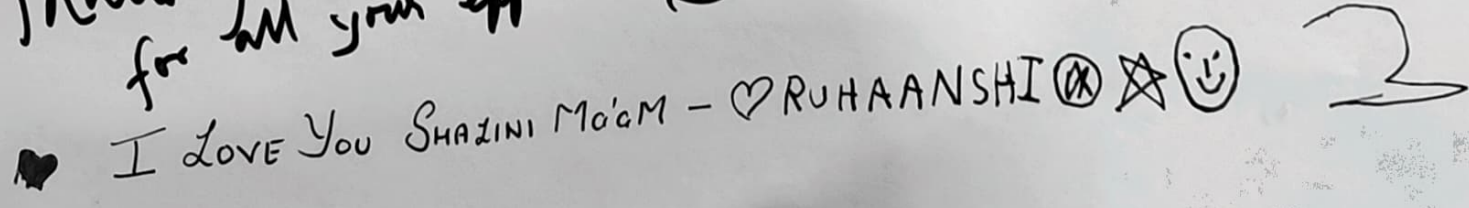 for all your
♥ I LOVE YOU SHALINI MA'AM - ♡ RUHAANSHI ☆ ☺ 2